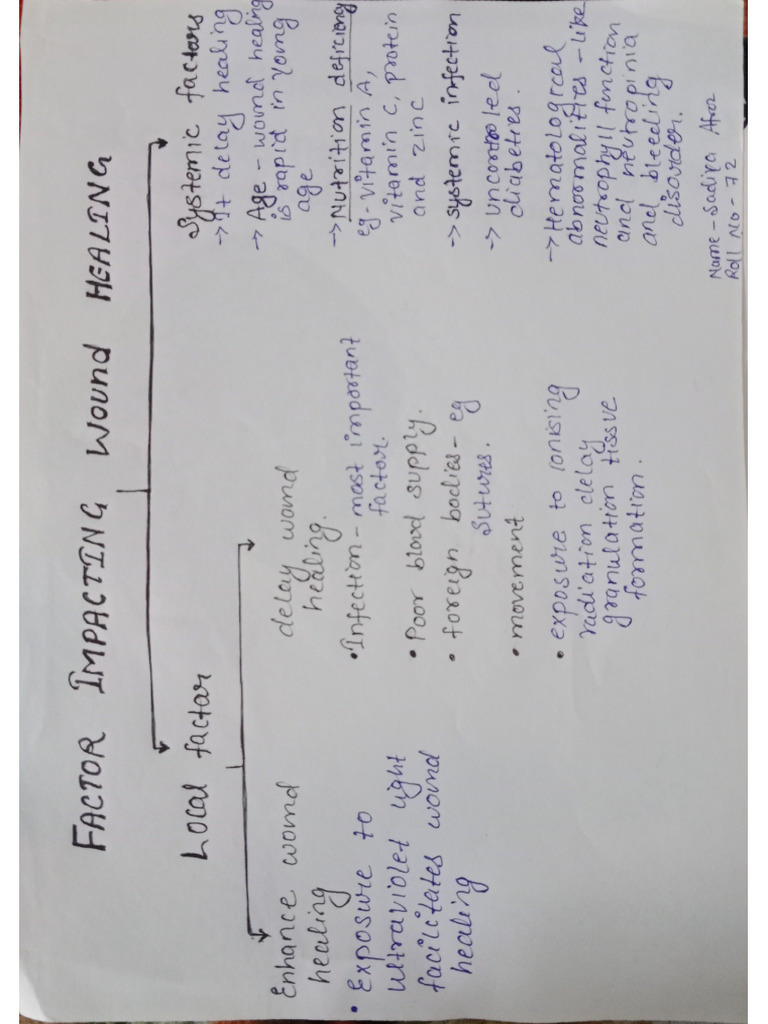 FACTOR IMPACTING WOUND HEALING
Local factor
Enhance wound
healing
• Exposure to
Ultraviolet light
facilitates wound
healing
delay wound
healing.
• Infection - most important
factor.
• Poor blood supply.
• foreign bodies - eg
Sutures.
• movement
• exposure to ionising
radiation delay
granulation tissue
formation.
Systemic factors
→ It delay healing
→ Age - wound healing
is rapid in young
age
→ Nutrition deficiency
eg - vitamin A,
vitamin C, protein
and zinc
→ systemic infection
→ uncontroled
diabeties.
→ Hematological
abnormalities - like
neutrophyll function
and neutropinia
and bleeding
disorder.
Name - Sadiya Afroz
Roll No - 72